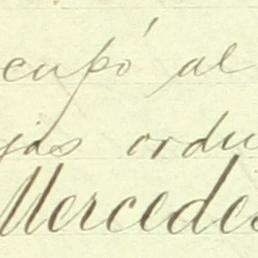 cupó al
jas ordu
Mercedes